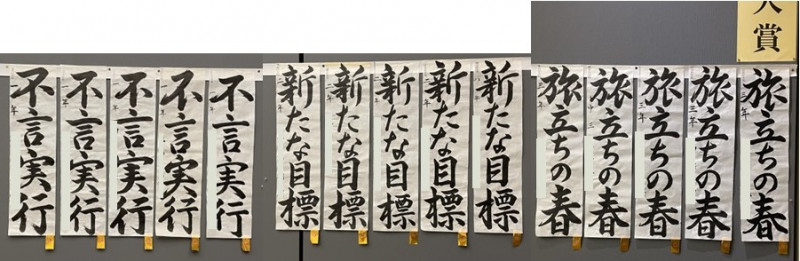 賞
不言実行
不言実行
不言実行
不言実行
不言実行
新たな目標
新たな目標
新たな目標
新たな目標
新たな目標
旅立ちの春
三年
旅立ちの春
三年
旅立ちの春
三年
旅立ちの春
三年
旅立ちの春
三年